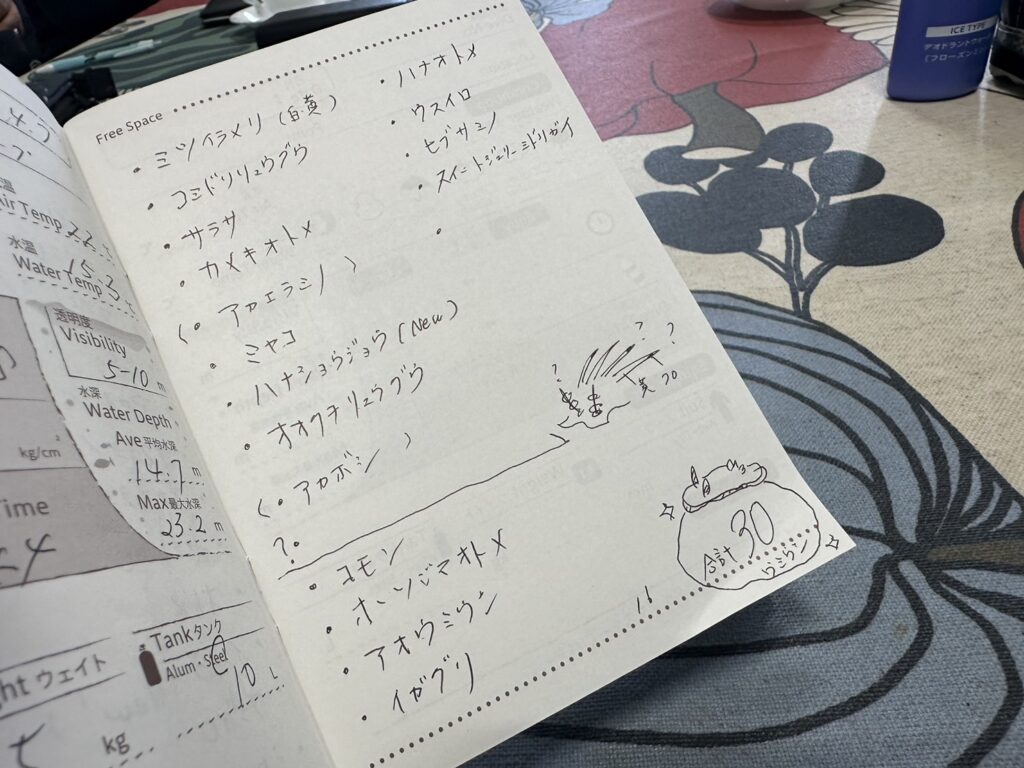 Free Space
・ミツイラメリ(白黄)
・コミドリリュウグウ
・サラサ
・カメキオトメ
(・アカエラミノ)
・ミヤコ
・ハナショウジョウ(New)
・オオクチリュウグウ
(・アカボシ)
?。
・コモン
・ホンジマオトメ
・アオウミウシ
・イガグリ
・ハナオトメ
・ウスイロ
・ヒブサミノ
・スイートジェリーミドリガイ
・
? ? ?
黄 フロ
合計 30
ウミウシ
16
水温
Air Temp 22
Water Temp 15.3
透明度
Visibility
5-10 m
水深
Water Depth
Ave 平均水深
14.7 m
Max 最大水深
23.2 m
kg/cm²
Time
Tank タンク
Alum・Steel
10 L
ght ウェイト
kg
ICE TYPE
デオドラントウォ
(フローズンミ